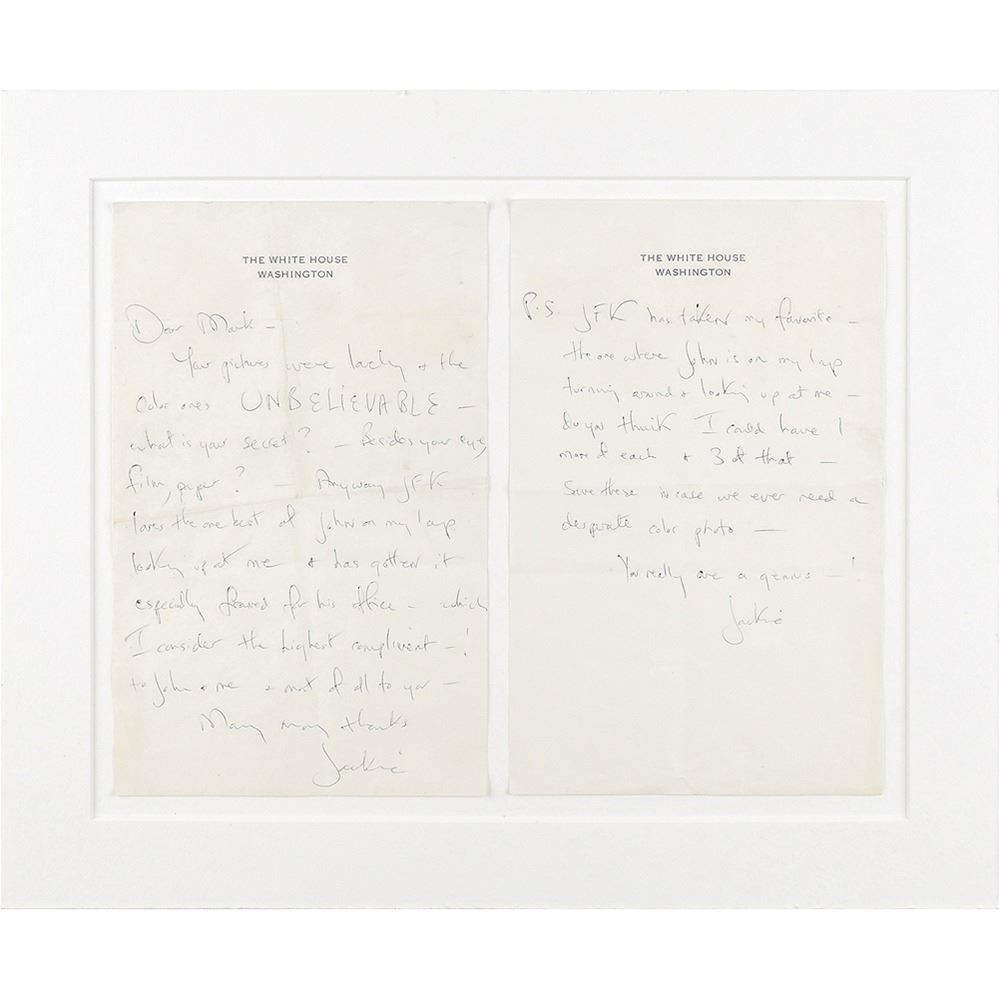 THE WHITE HOUSE
WASHINGTON
Dear Mark -
Your pictures were lovely & the
color ones UNBELIEVABLE -
what is your secret? - Besides your eye,
film, paper? - Anyway JFK
loves the one best of John on my lap
looking up at me & has gotten it
especially framed for his office - which
I consider the highest compliment - !
to John & me & most of all to you -
Many many thanks
Jackie
THE WHITE HOUSE
WASHINGTON
P.S. JFK has taken my favorite -
the one where John is on my lap
turning around & looking up at me -
do you think I could have 1
more of each & 3 of that -
Save these in case we ever need a
desperate color photo -
You really are a genius - !
Jackie